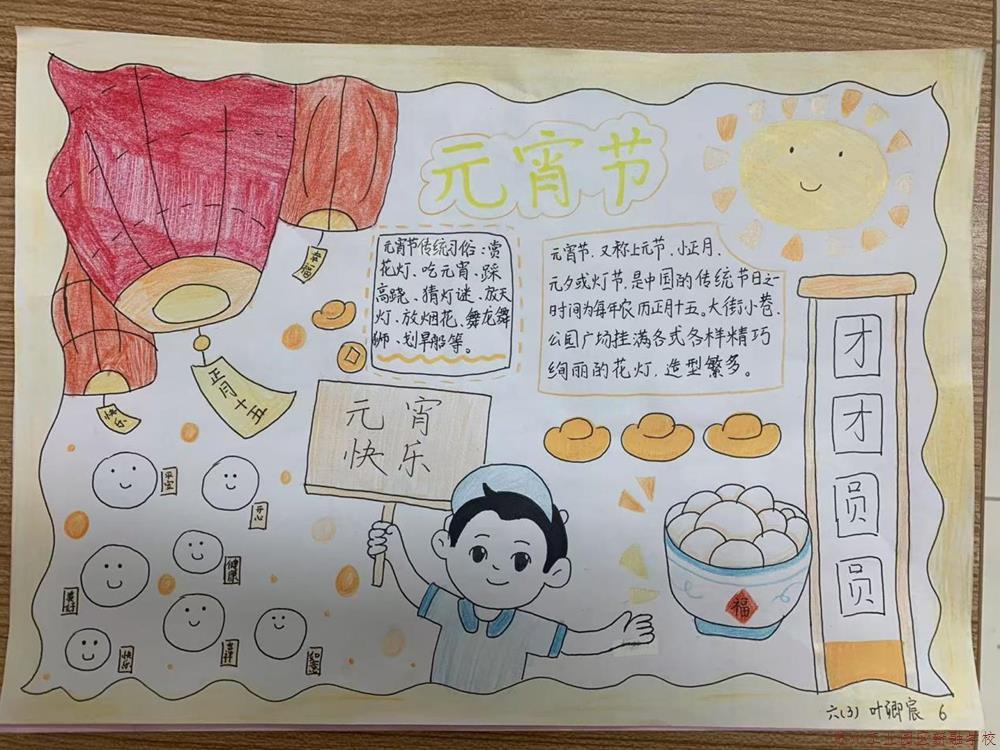 元宵节
幸福
快乐
正月十五
元宵节传统习俗:赏
花灯、吃元宵、踩
高跷、猜灯谜、放天
灯、放烟花、舞龙舞
狮、划旱船等。
元宵节,又称上元节、小正月、
元夕或灯节,是中国的传统节日之一
时间为每年农历正月十五。大街小巷、
公园广场挂满各式各样精巧
绚丽的花灯,造型繁多。
元宵
快乐
平安
开心
健康
美好
吉祥
快乐
如意
福
团
团
圆
圆
六(3) 叶卿宸 6